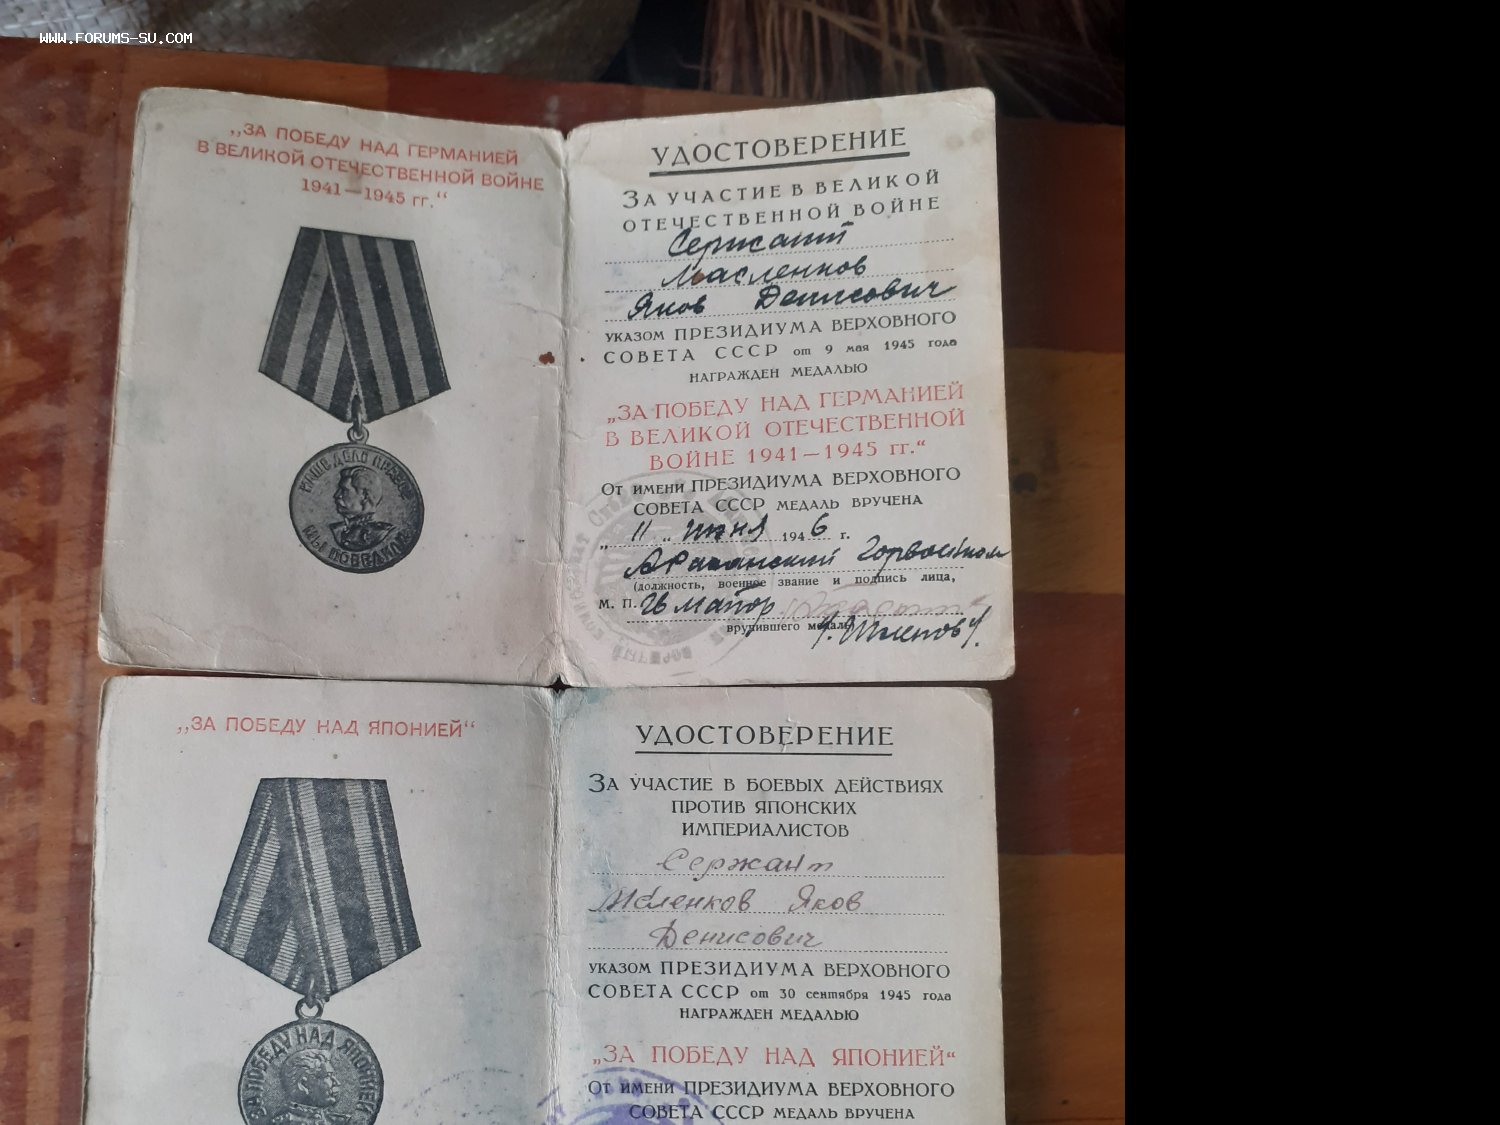 WWW.FORUMS-SU.COM
„ЗА ПОБЕДУ НАД ГЕРМАНИЕЙ
В ВЕЛИКОЙ ОТЕЧЕСТВЕННОЙ ВОЙНЕ
1941—1945 гг.“
НАШЕ ДЕЛО ПРАВОЕ
МЫ ПОБЕДИЛИ
УДОСТОВЕРЕНИЕ
ЗА УЧАСТИЕ В ВЕЛИКОЙ
ОТЕЧЕСТВЕННОЙ ВОЙНЕ
Сержант
Масленков
Яков Денисович
УКАЗОМ ПРЕЗИДИУМА ВЕРХОВНОГО
СОВЕТА СССР от 9 мая 1945 года
НАГРАЖДЕН МЕДАЛЬЮ
„ЗА ПОБЕДУ НАД ГЕРМАНИЕЙ
В ВЕЛИКОЙ ОТЕЧЕСТВЕННОЙ
ВОЙНЕ 1941—1945 гг.“
От имени ПРЕЗИДИУМА ВЕРХОВНОГО
СОВЕТА СССР МЕДАЛЬ ВРУЧЕНА
„11„ июня 1946 г.
Горвоенком
(должность, военное звание и подпись лица,
М. П. Гв майор
вручившего медаль)
„ЗА ПОБЕДУ НАД ЯПОНИЕЙ“
ЗА ПОБЕДУ НАД ЯПОНИЕЙ
УДОСТОВЕРЕНИЕ
ЗА УЧАСТИЕ В БОЕВЫХ ДЕЙСТВИЯХ
ПРОТИВ ЯПОНСКИХ
ИМПЕРИАЛИСТОВ
Сержант
Масленков Яков
Денисович
УКАЗОМ ПРЕЗИДИУМА ВЕРХОВНОГО
СОВЕТА СССР от 30 сентября 1945 года
НАГРАЖДЕН МЕДАЛЬЮ
„ЗА ПОБЕДУ НАД ЯПОНИЕЙ“
От имени ПРЕЗИДИУМА ВЕРХОВНОГО
СОВЕТА СССР МЕДАЛЬ ВРУЧЕНА